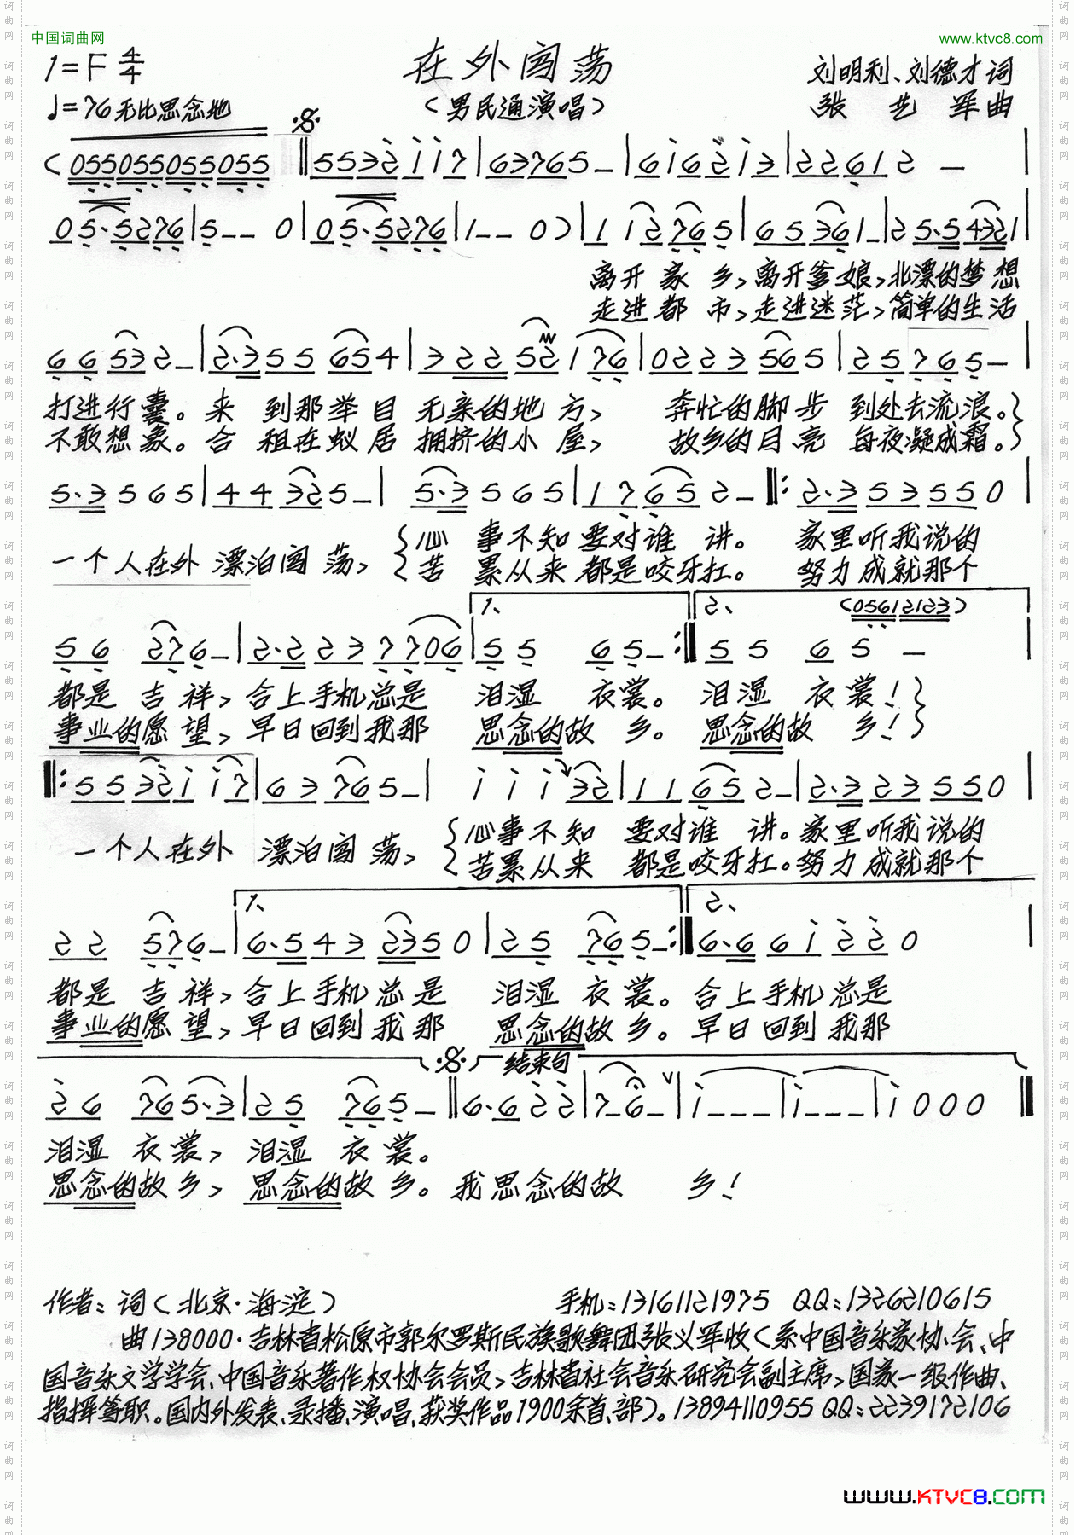 中国词曲网 www.ktvc8.com
1=F 4/4 在外闯荡 刘明利、刘德才词
♩=76 无比思念地 (男民通演唱) 张艺军曲
(055055055055 𝄋 ‖5532 i i 7 | 63765 – | 6 i 6 2 i 3 | 22612 – |
05·5276 | 5 – – 0 | 05·5276 | 1 – – 0) | 1 12765 | 65361 – | 25·54321 |
离开家乡,离开爹娘,北漂的梦想
走进都市,走进迷茫,简单的生活
66532 – | 2·355654 | 322521 76 | 0223565 | 25765 – |
打进行囊。来到那举目无亲的地方, 奔忙的脚步到处去流浪。}
不敢想象。合租在蚁居拥挤的小屋, 故乡的月亮每夜凝成霜。}
5·3565 | 44325 – | 5·3565 | 17652 – ‖: 2·3535550 |
一个人在外漂泊闯荡, {心事不知要对谁讲。 家里听我说的
{苦累从来都是咬牙扛。 努力成就那个
1、 2、 (05612123)
56 276 – | 2·2237706 | 55 65 – :‖ 55 65 –
都是吉祥,合上手机总是 泪湿衣裳。 泪湿衣裳!}
事业的愿望,早日回到我那 思念的故乡。 思念的故乡!}
‖: 5532 i i 7 | 63765 – | i i i 32 | 11652 – | 2·3235550 |
一个人在外漂泊闯荡, {心事不知要对谁讲。家里听我说的
{苦累从来都是咬牙扛。努力成就那个
1、 2、
22 576 – | 6·5432350 | 25 765 – :‖ 6·66 i 220 |
都是吉祥,合上手机总是 泪湿衣裳。合上手机总是
事业的愿望,早日回到我那 思念的故乡。早日回到我那
𝄋 结束句
26 765·3 | 25 765 – ‖ 6·622 | 7 – 6 – | i – – – | i – – – | i 000 ‖
泪湿衣裳,泪湿衣裳。
思念的故乡,思念的故乡。我思念的故 乡!
作者:词(北京·海淀) 手机:13161121975 QQ:1326210615
曲138000·吉林省松原市郭尔罗斯民族歌舞团张义军收(系中国音乐家协会、中
国音乐文学学会、中国音乐著作权协会会员,吉林省社会音乐研究会副主席,国家一级作曲、
指挥等职。国内外发表、录播、演唱、获奖作品1900余首、部)。13894110955 QQ:2239172106
www.KTVC8.COM